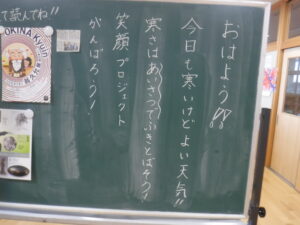 おはよう!!
今日も寒いけどよい天気!!
寒さはあいさつでふきとばそう!
笑顔プロジェクト
がんばろう!
て読んでね!!
OKINA Kyuin